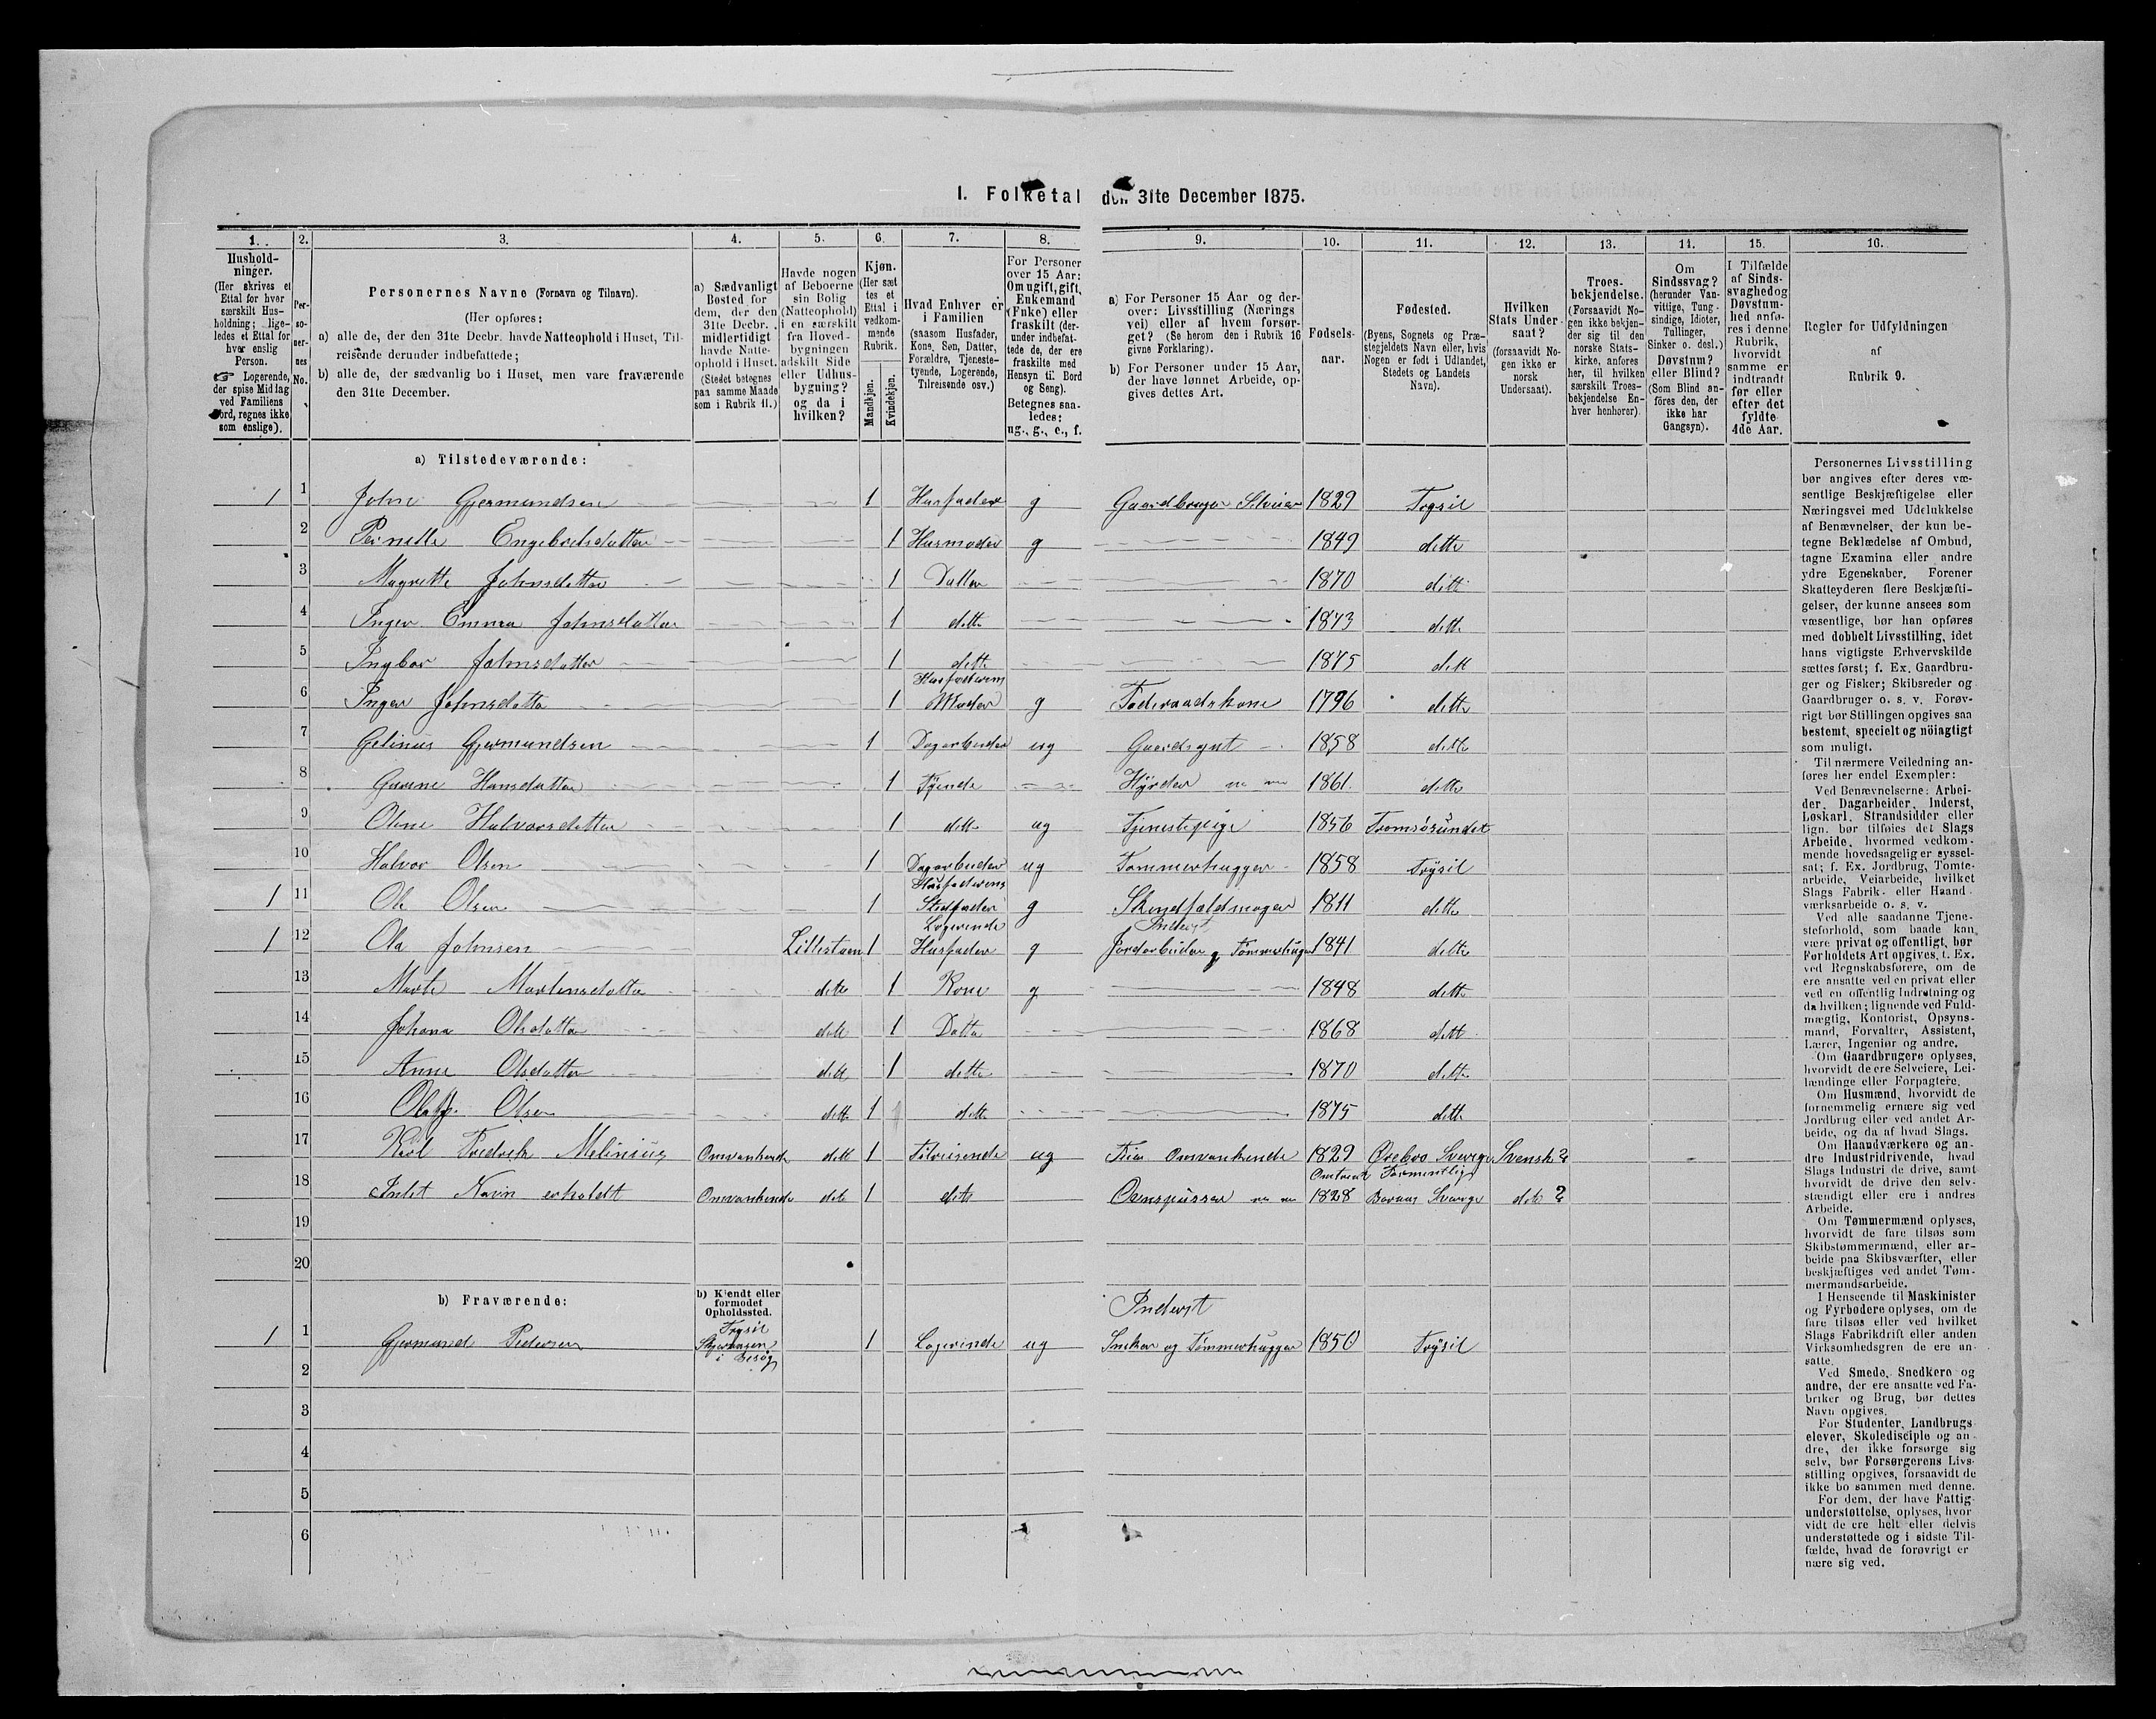 I. Folketal den 31te December 1875.
1. 2. 3. 4. 5. 6. 7. 8. 9. 10. 11. 12. 13. 14. 15. 16.
Husholdninger.
(Her skrives et
Ettal for hver
særskilt Hus-
holdning; lige-
ledes et Ettal for
hver enslig
Person.
☞ Logerende,
der spise Middag
ved Familiens
Bord, regnes ikke
som enslige).
Per-
so-
ner-
nes
No.
Personernes Navne (Fornavn og Tilnavn).
(Her opføres:
a) alle de, der den 31te Decbr. havde Natteophold i Huset, Til-
reisende derunder indbefattede;
b) alle de, der sædvanlig bo i Huset, men vare fraværende
den 31te December.
a) Sædvanligt
Bosted for
dem, der den
31te Decbr.
midlertidigt
havde Natte-
ophold i Huset.
(Stedet betegnes
paa samme Maade
som i Rubrik 11.)
Havde nogen
af Beboerne
sin Bolig
(Natteophold)
i en særskilt
fra Hoved-
bygningen
adskilt Side
eller Udhus-
bygning?
og da i
hvilken?
Kjøn.
(Her sæt
tes et
Ettal i
vedkom-
mende
Rubrik.
Mandkjøn.
Kvindekjøn.
Hvad Enhver er
i Familien
(saasom Husfader,
Kone, Søn, Datter,
Forældre, Tjeneste-
tyende, Logerende,
Tilreisende osv.)
For Personer
over 15 Aar:
Om ugift, gift,
Enkemand
(Enke) eller
fraskilt (der-
under indbefat-
tede de, der ere
fraskilte med
Hensyn til Bord
og Seng).
Betegnes saa-
ledes:
ug., g., e., f.
a) For Personer 15 Aar og der-
over: Livsstilling (Nærings
vei) eller af hvem forsør-
get? (Se herom den i Rubrik 16
givne Forklaring).
b) For Personer under 15 Aar,
der have lønnet Arbeide, op-
gives dettes Art.
Fødsels-
aar.
Fødested.
(Byens, Sognets og Præ-
stegjeldets Navn eller, hvis
Nogen er født i Udlandet,
Stedets og Landets
Navn).
Hvilken
Stats Under-
saat?
(forsaavidt No-
gen ikke er
norsk
Undersaat).
Troes-
bekjendelse.
(Forsaavidt No-
gen ikke bekjen-
der sig til den
norske Stats-
kirke, anføres
her, til hvilken
særskilt Troes-
bekjendelse En-
hver henhører).
Om
Sindssvag?
(herunder Van-
vittige, Tung-
sindige, Idioter,
Tullinger,
Sinker o. desl.)
Døvstum?
eller Blind?
(Som Blind an-
föres den, der
ikke har
Gangsyn).
I Tilfælde
af Sinds-
svaghed og
Døvstum-
hed anfø-
res i denne
Rubrik,
hvorvidt
samme er
indtraadt
før eller
efter det
fyldte
4de Aar.
Regler for Udfyldningen
af
Rubrik 9.
a) Tilstedeværende:
1 1 John Gjermundsen 1 Husfader g Gaardbruger Selveier 1829 Trysil
2 Pernille Engebretsdatter 1 Husmoder g 1849 dette
3 Magrette Johnsdatter 1 Datter 1870 dette
4 Inger Emma Johnsdatter 1 dette 1873 dette
5 Ingbor Johnsdatter 1 dette 1875 dett
6 Inger Johnsdatter 1 Husfaderens Moder g Foderaadskone 1796 dette
7 Gelinus Gjermundsen 1 Dagarbeider ug Gaardsgut 1858 dette
8 Hansdatter 1 Tjende Hyrder 1861 dette
9 Oline Halvorsdatter 1 dette ug Tjenestepige 1856 Tromsösundet
10 Halvor Olsen 1 Dagarbeider ug Tømmerhugger 1858 Trysil
1 11 Ole Olsen 1 Husfaderens Stedfader g Skindfeldmager 1811 dette
1 12 Ola Johnsen Lillestuen 1 Logerende Husfader g Inderst Jordarbeider g Tømmerhuger 1841 dette
13 Marte Martinsdatter dette 1 Kone g 1848 dette
14 Johana Olsdatter dett 1 Datter 1868 dett
15 Anne Olsdatter dett 1 dette 1870 dette
16 Olsen dett 1 dett 1875 dett
17 Karl Fredrik Melinius Omvankende dett 1 Tilreisende ug Omvankende 1829 Ørebro Sverge Svensk?
18 Intet Navn erholdt Omvankende dete 1 dete Omtrent 1828 Formentlig Sverge dete?
19
20
b) Fraværende:
b) Kjendt eller
formodet
Opholdssted.
1 1 Gjermund Pedersen Trysil i Besøg 1 Logerende ug Inderst Snekar og Tømmerhugger 1850 Trysil
2
3
4
5
6
Personernes Livsstilling
bør angives efter deres væ-
sentlige Beskjæftigelse eller
Næringsvei med Udelukkelse
af Benævnelser, der kun be-
tegne Beklædelse af Ombud,
tagne Examina eller andre
ydre Egenskaber. Forener
Skatteyderen flere Beskjæfti-
gelser, der kunne ansees som
væsentlige, bør han opføres
med dobbelt Livsstilling, idet
hans vigtigste Erhvervskilde
sættes først; f. Ex. Gaardbru-
ger og Fisker; Skibsreder og
Gaardbruger o. s. v. Forøv-
rigt bør Stillingen opgives saa
bestemt, specielt og nöiagtigt
som muligt.
Til nærmere Veiledning an-
føres her endel Exempler:
Ved Benævnelserne: Arbei-
der, Dagarbeider, Inderst,
Løskarl, Strandsidder eller
lign. bør tilføies det Slags
Arbeide, hvormed vedkom-
mende hovedsagelig er syssel-
sat; f. Ex. Jordbrug, Tomte-
arbeide, Veiarbeide, hvilket
Slags Fabrik- eller Haand-
værksarbeide o. s. v.
Ved alle saadanne Tjene-
steforhold, som baade kan
være privat og offentligt, bør
Forholdets Art opgives, t. Ex.
ved Regnskabsførere, om de
ere ansatte ved en privat eller
ved en offentlig Indretning og
da hvilken; lignende ved Fuld-
mægtig, Kontorist, Opsyns-
mand, Forvalter, Assistent,
Lærer, Ingeniør og andre.
Om Gaardbrugere oplyses,
hvorvidt de ere Selveiere, Lei-
lændinge eller Forpagtere.
Om Husmænd, hvorvidt de
fornemmelig ernære sig ved
Jordbrug eller ved andet Ar-
beide, og da af hvad Slags.
Om Haandværkere og an-
dre Industridrivende, hvad
Slags Industri de drive, samt
hvorvidt de drive den selv-
stændigt eller ere i andres
Arbeide.
Om Tømmermænd oplyses,
hvorvidt de fare tilsøs som
Skibstømmermænd, eller ar-
beide paa Skibsværfter, eller
beskjæftiges ved andet Tøm-
mermandsarbeide.
I Henseende til Maskinister
og Fyrbødere oplyses, om de
fare tilsøs eller ved hvilket
Slags Fabrikdrift eller anden
Virksomhedsgren de ere an-
satte.
Ved Smede, Snedkere og
andre, der ere ansatte ved Fa-
briker og Brug, bør dettes
Navn opgives.
For Studenter, Landbrugs-
elever, Skoledisciple og an-
dre, der ikke forsørge sig
selv, bør Forsørgerens Livs-
stilling opgives, forsaavidt de
ikke bo sammen med denne.
For dem, der have Fattig-
understøttelse, oplyses, hvor-
vidt de ere helt eller delvis
understøttede og i sidste Til-
fælde, hvad de forøvrigt er-
nære sig ved.